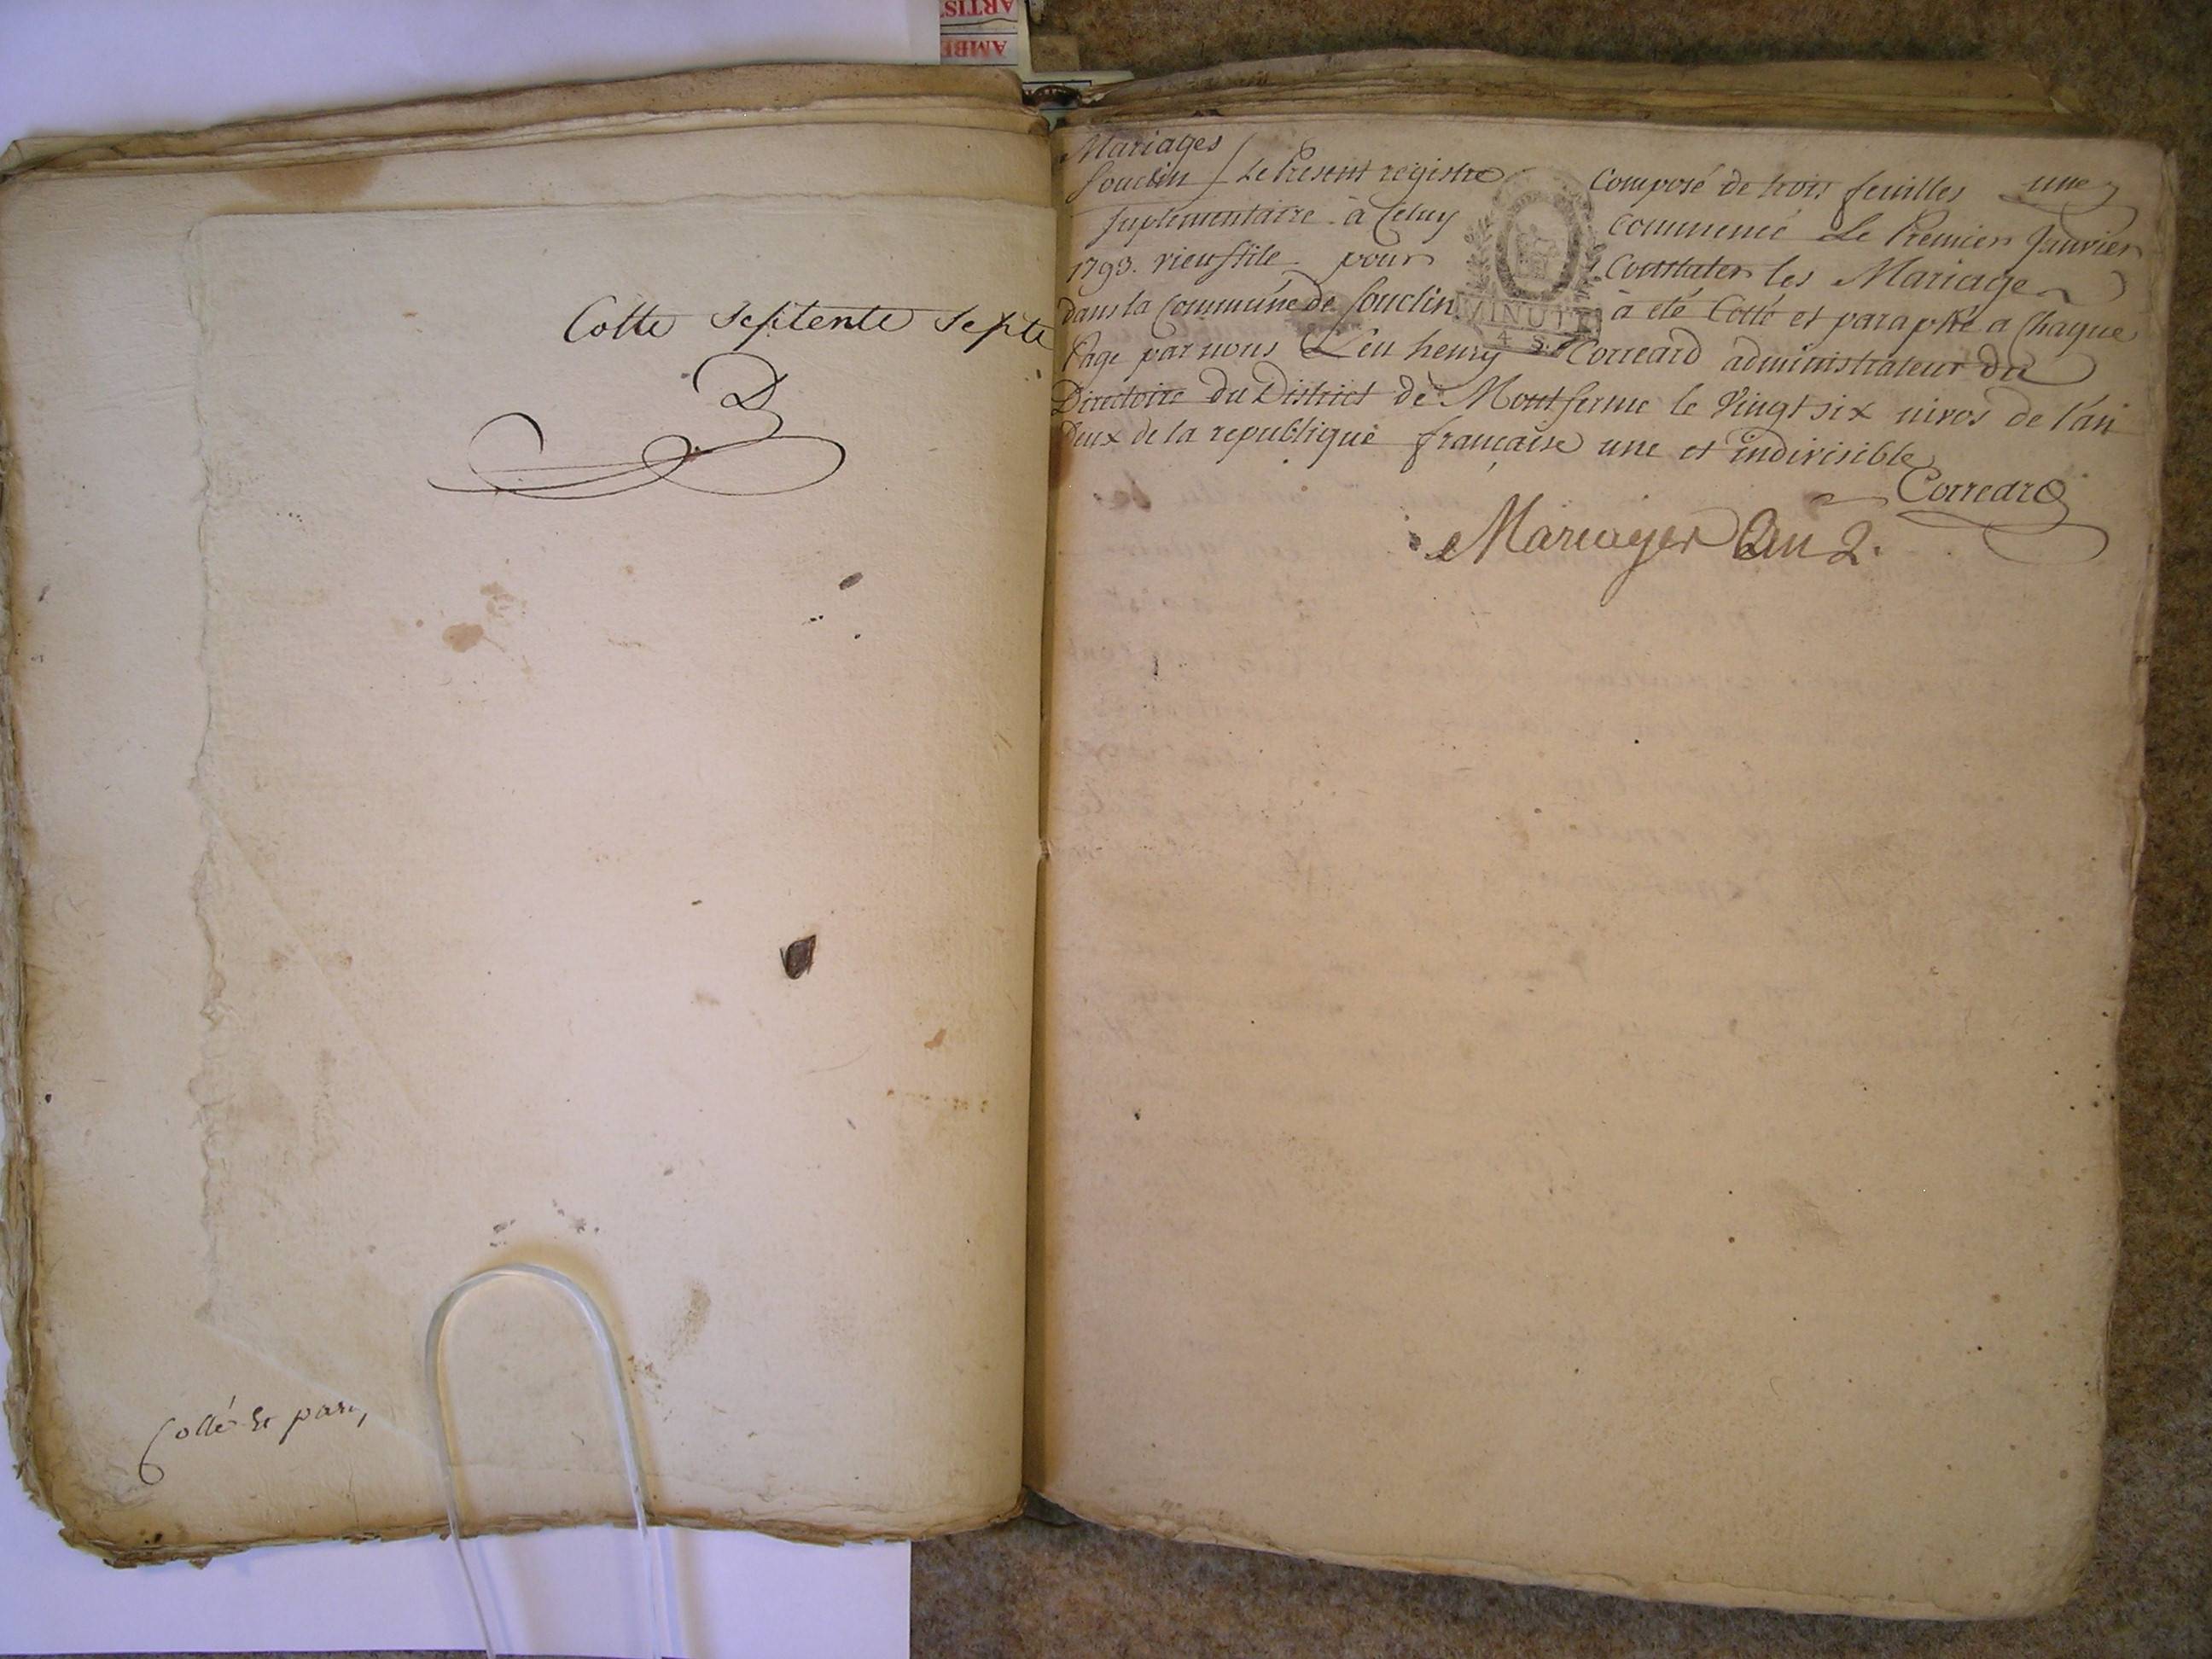 ARTIS
AMBE
Cotte septente septe
Cotté et par,
Mariages
Souclin / Le Present registre Composé de trois feuilles une
suplementaire à Celuy commencé Le Premier Janvier
1793. vieustile pour Constater les Mariage
dans la Commune de Souclin à eté Cotté et paraphé a Chaque
Page par nous Leu henry Correard administrateur du
Directoire du District de Montferme le Vingt six nivos de l'an
Deux de la republique française une et indivisible
Correard
MINUTE
4 S.
Mariages An 2.